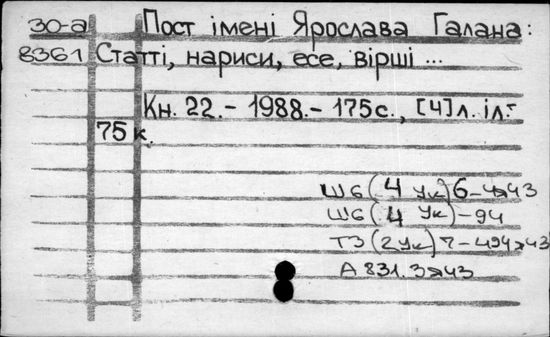 30-а Пост імені Ярослава Галана:
8361 Статті, нариси, есе, вірші ...
Кн. 22. - 1988. - 175с., [4]л. іл.
75 к.
Ш6(4 Ук)6-4я43
Ш6(4 Ук)-94
Т3(2Ук)7-494я43
А 831.3я43